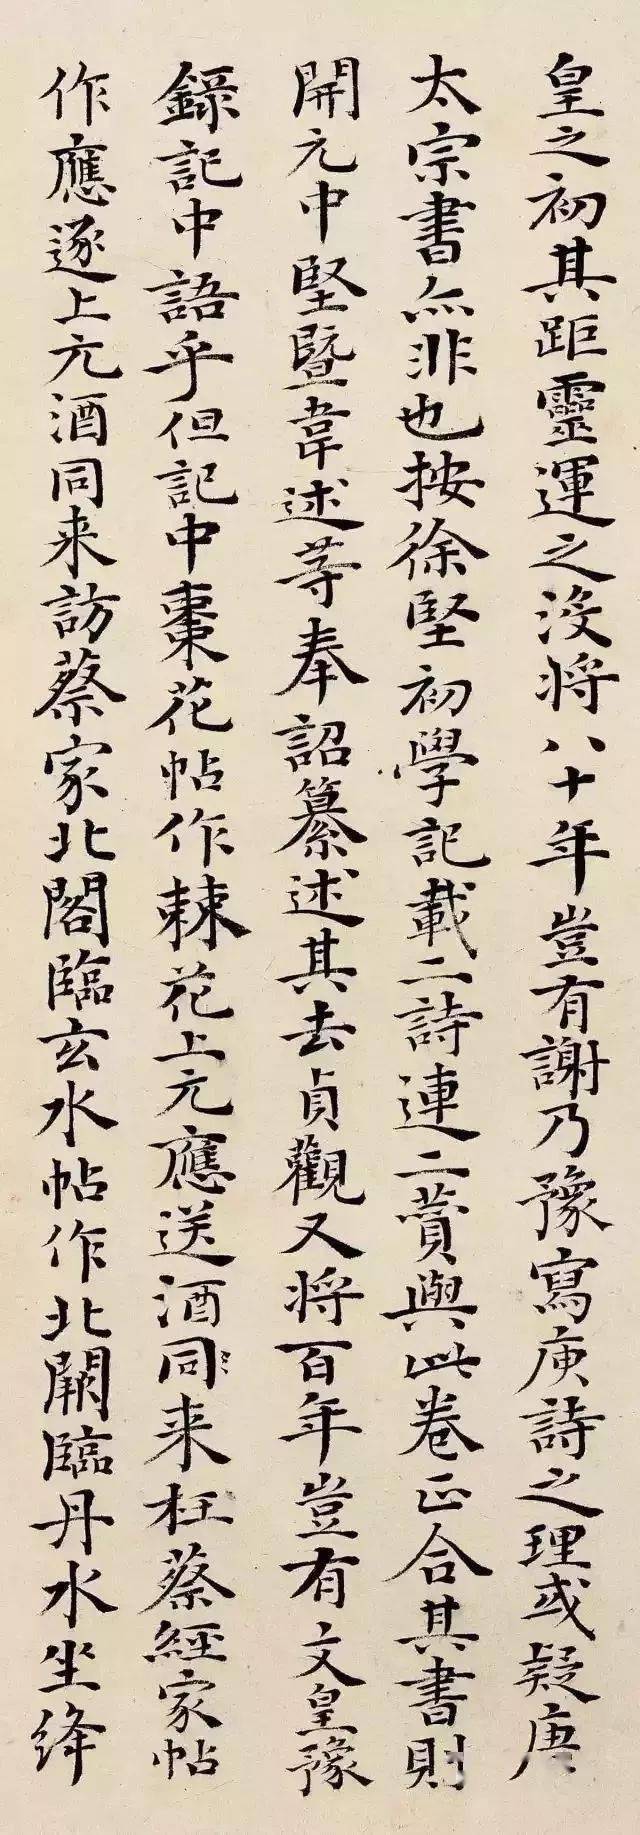 皇之初其距靈運之没将八十年豈有謝乃豫寫庾詩之理或疑唐
太宗書亦非也按徐堅初學記載二詩連二賛與此卷正合其書則
開元中堅暨韋述等奉詔纂述其去貞觀又将百年豈有文皇豫
録記中語乎但記中棗花帖作棘花上元應送酒同来枉蔡經家帖
作應逐上元酒同来訪蔡家北閣臨玄水帖作北闕臨丹水坐絳